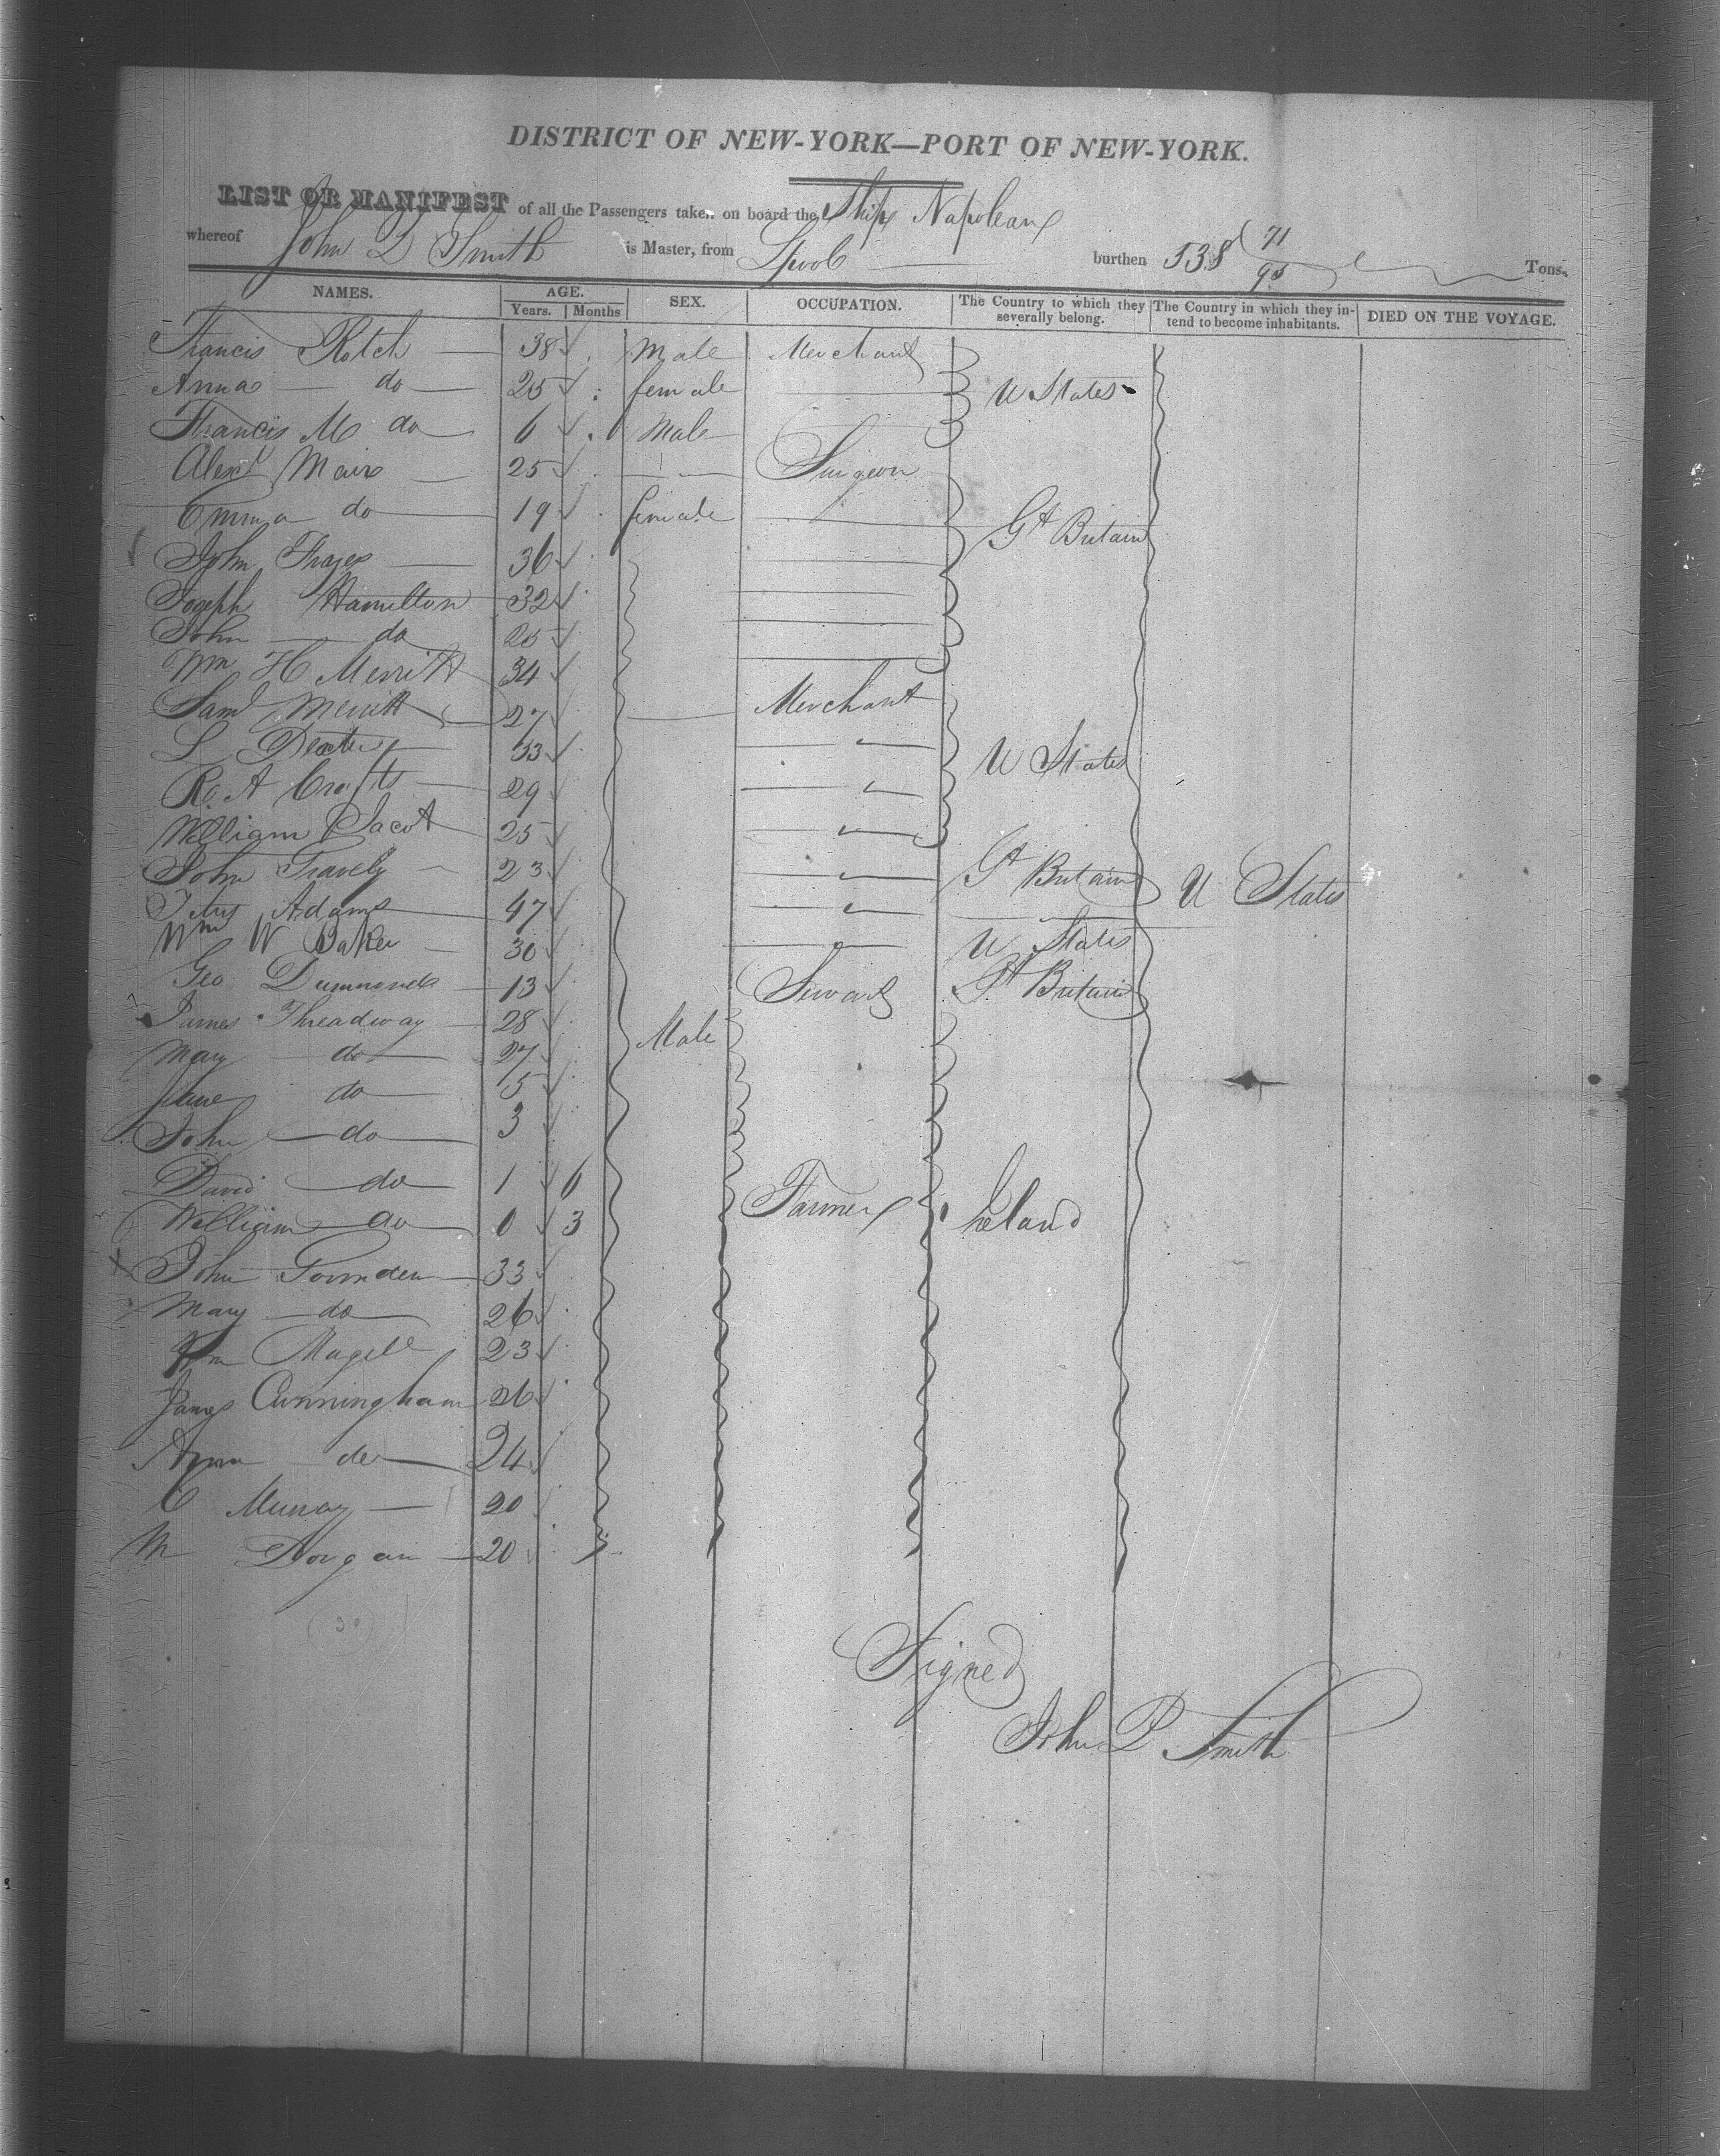 DISTRICT OF NEW-YORK—PORT OF NEW-YORK.
LIST OR MANIFEST of all the Passengers taken on board the Ship Napoleon
whereof John P Smith is Master, from Lpool burthen 538 71/95 Tons.
NAMES. AGE. SEX. OCCUPATION. The Country to which they severally belong. The Country in which they intend to become inhabitants. DIED ON THE VOYAGE.
Years. Months
Francis Rotch 38 Male Merchant
Anna do 25 female U States
Francis M do 6 Male
Alexr Mair 25 Surgeon
Emma do 19 female Gt Britain
John 36
Joseph Hamilton 32
John do 25
Wm H Merritt 34
Saml Merritt 27 Merchant
L Dexter 33 U States
R. A Crafts 29
William Jacot 25
John Gravely 23 Gt Britain U States
Adams 47
Wm W Baker 30 U States
Geo Dummond 13 Servant Gt Britain
James Threadway 28 Male
Mary do 27
Jane do 5
John do 3
David do 1 6 Farmer Ireland
William do 0 3
John 33
Mary do 26
Wm Magill 23
James Cunningham 26
Ann do 24
C Murray 20
M Dorgan 20
30
Signed
John P Smith